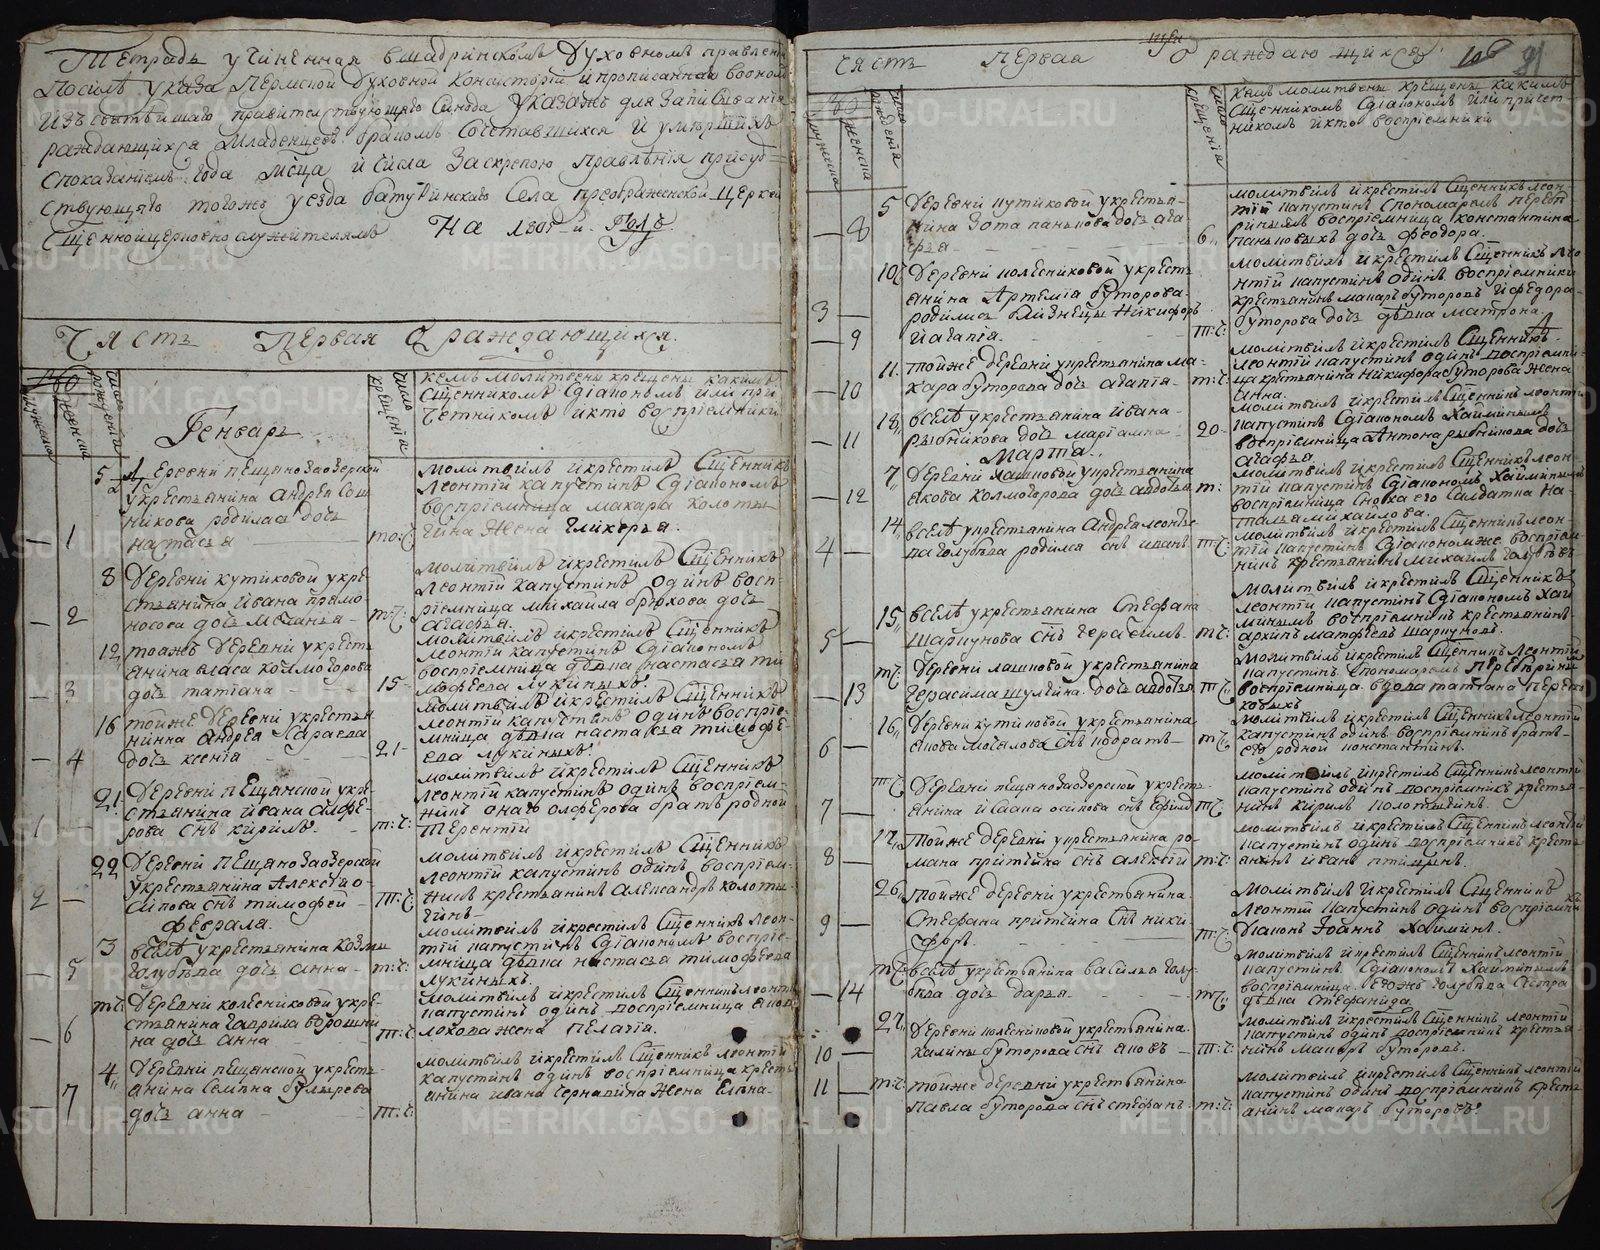 Тетрадь учиненная в шадринскомъ Духовномъ правлении
Посилѣ указа Пермской Духовной Консистории и прописаннаго во ономъ
Изъ святѣйшаго правительствующаго Синода указахъ для записывания
раждающихся Младенцевъ бракомъ Сочетавшихся и умершихъ
Спокаданіемъ года мсца и числа За скрепою правлѣнія присуд=
ствующаго тогожъ уезда батуринскаго Села преображенской церкви
Сщенноицерковнослужителямъ На 1805й Годъ.
Часть Первая О раждающихся.
мужеска
женска
число рожденія
Генварь
число крещенія
кемъ молитвены крещены какимъ
Сщенникомъ Сдіакономъ или при
четникомъ и кто восприемники
5 Деревни пещанозаозерской
укрестьянина андрея Сош
никова родилась дочь
— 1 настасья то:ч:
молитвилъ икрестилъ Сщенникъ
Леонтій капустинъ Сдіакономъ
восприемница макара колоты
гина Жена гликерья.
8 Деревни кутиковой укре
стьянина ивана прямо
— 2 носова дочь меланья т:ч:
молитвилъ икрестилъ Сщенникъ
Леонтій капустинъ одинъ восп
риемница михайла брюхова дочь
агафья.
12 тоажъ Деревни укресть
янина власа колмогорова
— 3 дочь татіана 15
молитвилъ икрестилъ Сщенникъ
леонтій капустинъ Сдіакономъ
восприемница дѣвка настасья ти
мофеева лукиныхъ
16 тойже Деревни укрестья
нина андрея Сараева
— 4 дочь ксенія 21
молитвилъ икрестилъ Сщенникъ
леонтій капустинъ одинъ воспріе
мница дѣвка настасья тимофѣ
ева лукиныхъ
21 Деревни пещанской укре
стьянина ивана алфе
1 — рова снъ кирилъ. т:ч:
молитвилъ икрестилъ Сщенникъ
леонтій капустинъ одинъ восприем
никъ онаго олферова братъ родной
Терентій
22 Деревни пещанозаозерской
укрестьянина Алексѣя о
2 — сипова снъ тимофей т:ч:
молитвилъ икрестилъ Сщенникъ
леонтій капустинъ одинъ восприем
никъ крестьянинъ александръ колоты
гинъ
февраля.
3 вселѣ укрестьянина козмы
— 5 голубева дочь анна т:ч:
молитвилъ икрестилъ Сщенникъ леон
тій капустинъ Сдіакономъ воспріе
мница дѣвка настасья тимофеева
лукиныхъ.
тч: Деревни колесниковой укре
стьянина гаврила ворошни
— 6 на дочь анна т:ч:
молитвилъ икрестилъ Сщенникъ леонтій
капустинъ одинъ восприемница
Жена пелагія.
4 Деревни пещанской укресть
янина Семіона булырева
— 7 дочь анна т:ч:
молитвилъ икрестилъ Сщенникъ леонтій
капустинъ одинъ восприемница кресть
янина ивана чернавина Жена Елена
часть первая О раждающихся
мужеска
женска
число рожденія
число крещенія
кемъ молитвены крещены какимъ
Сщенникомъ Сдіакономъ или причет
никомъ и кто восприемники
5 Деревни кутиковой укрестья
нина Зота панькова дочь ага
— 8 фья 6
молитвилъ икрестилъ Сщенникъ леон
тій капустинъ Спономаремъ
восприемница константина
паньковыхъ дочь феодора.
10 Деревни колесниковой укресть
янина Артемія буторова
3 — родились близнецы никифоръ
— 9 и агапія. т:ч:
молитвилъ икрестилъ Сщенникъ лео
нтій капустинъ одинъ восприемники
крестьянинъ макаръ буторовъ ифедора
буторова дочь дѣвка матрона
11 тойже деревни укрестьянина ма
— 10 кара буторова дочь агапія т:ч:
молитвилъ икрестилъ Сщенникъ
леонтій капустинъ одинъ восприемни
ца крестьянина никифора буторова жена
анна.
18 вселѣ укрестьянина ивана
— 11 рыбникова дочь маріамна 20
молитвилъ икрестилъ Сщенникъ леонтій
капустинъ Сдіакономъ Хайминымъ
восприемница Антона рыбникова дочь
агафья
Марта.
7 Деревни лашковой укрестьянина
— 12 якова колмогорова дочь авдотья т:
молитвилъ икрестилъ Сщенникъ леон
тій капустинъ Сдіакономъ Хайминымъ
восприемница Сноха его Салдатка на
талья михайлова.
14 вселѣ укрестьянина Андрея леонтье
4 — ва голубева родился снъ иванъ т:ч:
молитвилъ икрестилъ Сщенникъ леон
тій капустинъ Сдіакономже восприем
никъ крестьянинъ михаилъ голубевъ
15 вселѣ укрестьянина Стефана
5 — шаркунова снъ герасимъ т:ч:
молитвилъ икрестилъ Сщенникъ
леонтій капустинъ Сдіакономъ Хай
минымъ восприемникъ крестьянинъ
архипъ матфеевъ шаркуновъ.
тч: Деревни лашковой укрестьянина
— 13 герасима шулѣина дочь авдотья т:ч:
молитвилъ икрестилъ Сщенникъ леонтій
капустинъ Спономаремъ
восприемница вдова татіана
16 Деревни кутиковой укрестьянина
6 — якова мосялова снъ кодратъ т:ч:
молитвилъ икрестилъ Сщенникъ леонтій
капустинъ одинъ восприемникъ братъ
его родной константинъ.
тч: Деревни пещанозаозерской укресть
7 — янина исаака осипова снъ т:ч:
молитвилъ икрестилъ Сщенникъ леонтій
капустинъ одинъ восприемникъ крестья
нинъ кирилъ колотыгинъ.
17 Тойже деревни укрестьянина ро
8 — мана притчина снъ алексѣй т:ч:
молитвилъ икрестилъ Сщенникъ леонтій
капустинъ одинъ восприемникъ кресть
янинъ иванъ
26 тойже деревни укрестьянина
9 — Стефана притчина снъ ники
форъ. т:ч:
молитвилъ икрестилъ Сщенникъ
леонтій капустинъ одинъ восприемникъ
Діаконъ Іоаннъ Хайминъ.
тч: вселѣ укрестьянина василья голу
— 14 бева дочь дарья т:ч:
молитвилъ икрестилъ Сщенникъ леонтій
капустинъ Сдіакономъ Хайминымъ
восприемница егожъ голубева Сестра
дѣвка Стефанида
27 Деревни колесниковой укрестьянина
10 — калины буторова снъ яковъ т:ч:
молитвилъ икрестилъ Сщенникъ леонтій
капустинъ одинъ восприемникъ крестья
нинъ макаръ буторовъ.
11 — тч: тойже деревни укрестьянина
павла буторова снъ стефанъ т:ч:
молитвилъ икрестилъ Сщенникъ леонтій
капустинъ одинъ восприемникъ кресть
янинъ макаръ буторовъ.
METRIKI.GASO-URAL.RU